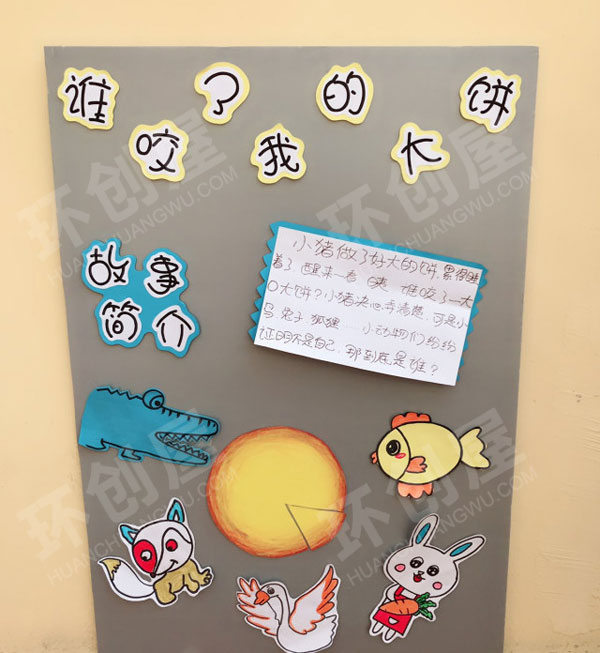 谁咬了我的大饼
故事
简介
小猪做了好大的饼,累得睡
着了 醒来一看 咦 谁咬了一大
口大饼?小猪决心弄清楚,可是小
鸟 兔子 狐狸……小动物们纷纷
证明不是自己,那到底是谁?
环创屋
HUANCHUANGWU.COM
环创屋
HUANCHUANGWU.COM
环创屋
HUANCHUANGWU.COM
环创屋
HUANCHUANGWU.COM